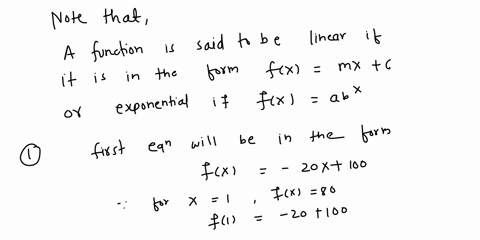 Note that,
A function is said to be linear if
it is in the form f(x) = mx + c
or exponential if f(x) = ab^x
① first eqn will be in the form
f(x) = - 20x + 100
∵ for x = 1, f(x) = 80
f(1) = -20 + 100